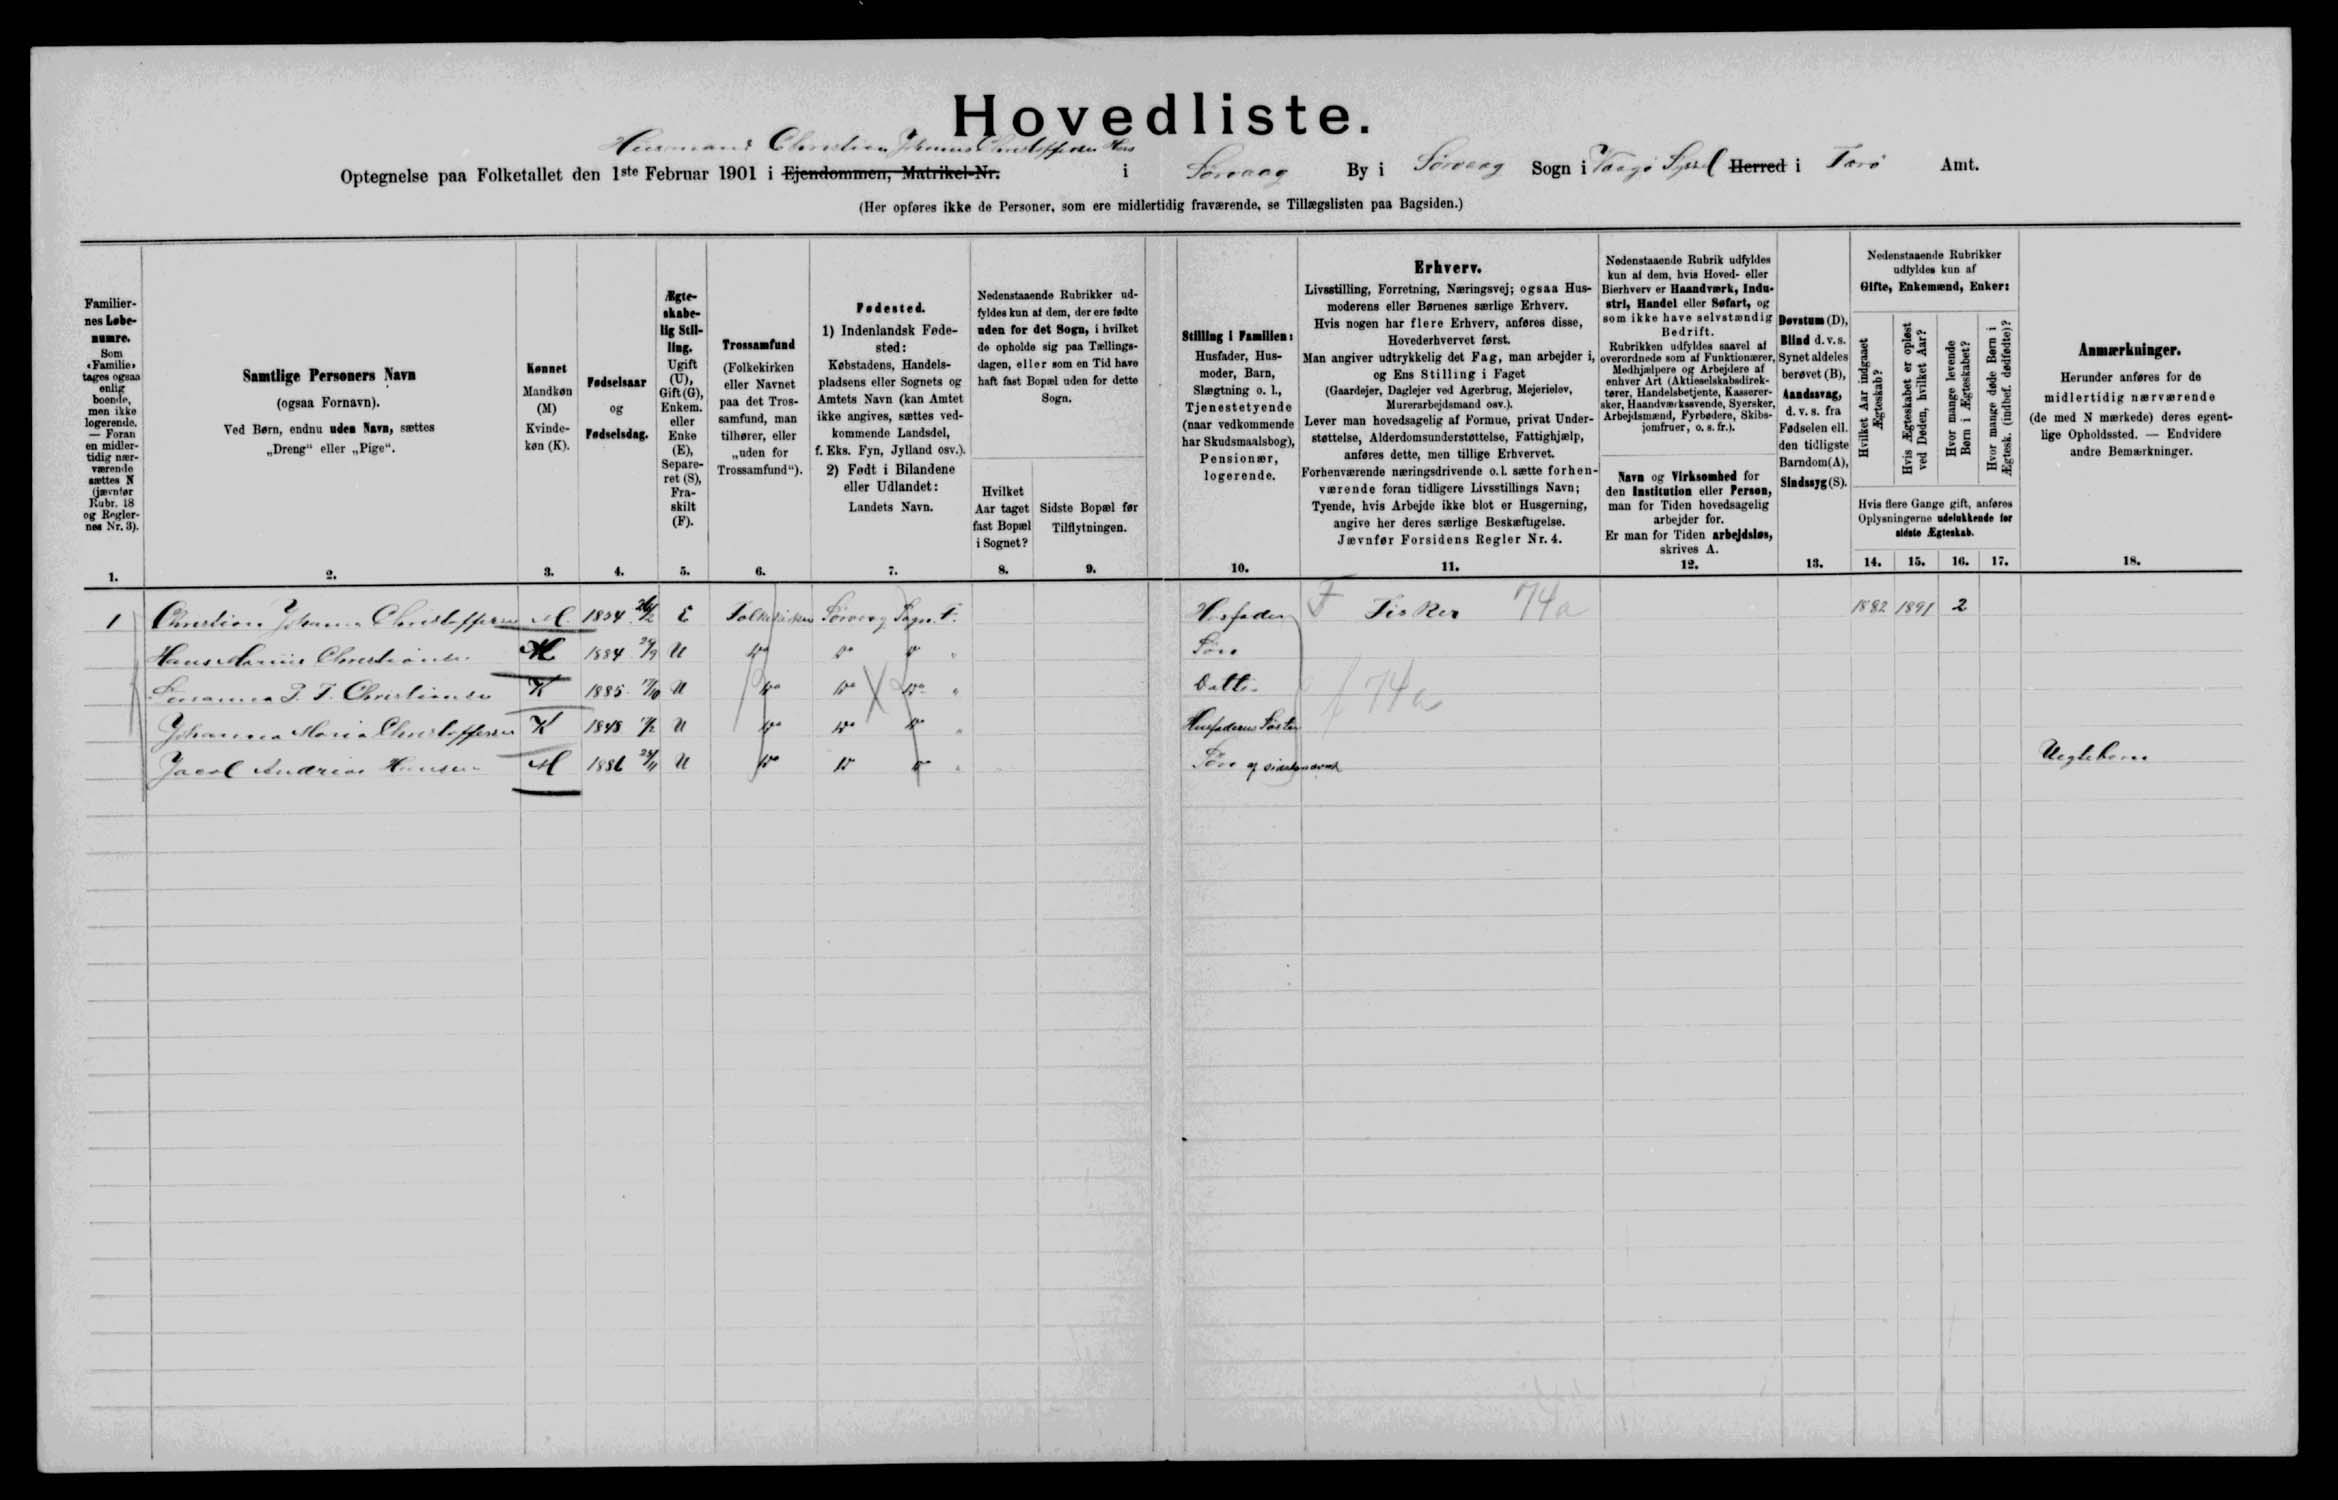 Hovedliste.
Husmand Christian Johannes Christoffersen Hus
Optegnelse paa Folketallet den 1ste Februar 1901 i Ejendommen, Matrikel-Nr. i Sørvaag By i Sørvaag Sogn i Vaagø Syssel Herred i Færø Amt.
(Her opføres ikke de Personer, som ere midlertidig fraværende, se Tillægslisten paa Bagsiden.)
Familiernes Løbenumre.
Som «Familie» tages ogsaa enlig boende, men ikke logerende. — Foran en midlertidig nærværende sættes N (jævnfør Rubr. 18 og Reglernes Nr. 3).
1.
Samtlige Personers Navn
(ogsaa Fornavn).
Ved Børn, endnu uden Navn, sættes
„Dreng“ eller „Pige“.
2.
Kønnet
Mandkøn
(M)
Kvinde-
køn (K).
3.
Fødselsaar
og
Fødselsdag.
4.
Ægte-
skabe-
lig Stil-
ling.
Ugift
(U),
Gift (G),
Enkem.
eller
Enke
(E),
Separe-
ret (S),
Fra-
skilt
(F).
5.
Trossamfund
(Folkekirken
eller Navnet
paa det Tros-
samfund, man
tilhører, eller
„uden for
Trossamfund“).
6.
Fødested.
1) Indenlandsk Føde-
sted:
Købstadens, Handels-
pladsens eller Sognets og
Amtets Navn (kan Amtet
ikke angives, sættes ved-
kommende Landsdel,
f. Eks. Fyn, Jylland osv.).
2) Født i Bilandene
eller Udlandet:
Landets Navn.
7.
Nedenstaaende Rubrikker ud-
fyldes kun af dem, der ere fødte
uden for det Sogn, i hvilket
de opholde sig paa Tællings-
dagen, eller som en Tid have
haft fast Bopæl uden for dette
Sogn.
Hvilket
Aar taget
fast Bopæl
i Sognet?
8.
Sidste Bopæl før
Tilflytningen.
9.
Stilling i Familien:
Husfader, Hus-
moder, Barn,
Slægtning o. l.,
Tjenestetyende
(naar vedkommende
har Skudsmaalsbog),
Pensionær,
logerende.
10.
Erhverv.
Livsstilling, Forretning, Næringsvej; ogsaa Hus-
moderens eller Børnenes særlige Erhverv.
Hvis nogen har flere Erhverv, anføres disse,
Hovederhvervet først.
Man angiver udtrykkelig det Fag, man arbejder i,
og Ens Stilling i Faget
(Gaardejer, Daglejer ved Agerbrug, Mejerielev,
Murerarbejdsmand osv.).
Lever man hovedsagelig af Formue, privat Under-
støttelse, Alderdomsunderstøttelse, Fattighjælp,
anføres dette, men tillige Erhvervet.
Forhenværende næringsdrivende o. l. sætte forhen-
værende foran tidligere Livsstillings Navn;
Tyende, hvis Arbejde ikke blot er Husgerning,
angive her deres særlige Beskæftigelse.
Jævnfør Forsidens Regler Nr. 4.
11.
Nedenstaaende Rubrik udfyldes
kun af dem, hvis Hoved- eller
Bierhverv er Haandværk, Indu-
stri, Handel eller Søfart, og
som ikke have selvstændig
Bedrift.
Rubrikken udfyldes saavel af
overordnede som af Funktionærer,
Medhjælpere og Arbejdere af
enhver Art (Aktieselskabsdirek-
tører, Handelsbetjente, Kasserer-
sker, Haandværkssvende, Syersker,
Arbejdsmænd, Fyrbødere, Skibs-
jomfruer, o. s. fr.).
Navn og Virksomhed for
den Institution eller Person,
man for Tiden hovedsagelig
arbejder for.
Er man for Tiden arbejdsløs,
skrives A.
12.
Døvstum (D),
Blind d. v. s.
Synet aldeles
berøvet (B),
Aandssvag,
d. v. s. fra
Fødselen ell.
den tidligste
Barndom (A),
Sindssyg (S).
13.
Nedenstaaende Rubrikker
udfyldes kun af
Gifte, Enkemænd, Enker:
Hvilket Aar indgaaet Ægteskab?
Hvis Ægteskabet er opløst ved Døden, hvilket Aar?
Hvor mange levende Børn i Ægteskabet?
Hvor mange døde Børn i Ægtesk. (indbef. dødfødte)?
Hvis flere Gange gift, anføres
Oplysningerne udelukkende for
sidste Ægteskab.
14. 15. 16. 17.
Anmærkninger.
Herunder anføres for de
midlertidig nærværende
(de med N mærkede) deres egent-
lige Opholdssted. — Endvidere
andre Bemærkninger.
18.
1 Christian Johannes Christoffersen M. 1854 E Folkekirken Sørvaag Sogn F. Husfader F Fisker 74a 1882 1891 2
Hans Marius Christiansen M 1884 29/9 U Do Do Do " Søn
Susanna P. F. Christiansen K 1885 17/10 U Do Do Do " Datter f 74a
Johanna Maria Christoffersen K 1848 U Do Do Do " Husfaderens Søster
Jacob Andrias Hansen M 1886 U Do Do Do " Søn af sidstnævnte Uægteboren